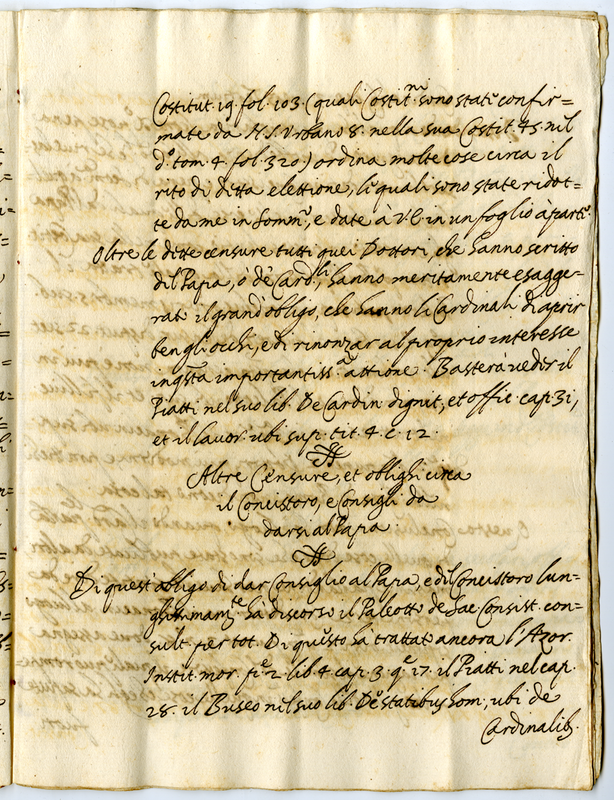 Costitut. 19. fol. 103. (quali Costit.ni sono stati confir=
mate da N. S. Urbano 8. nella sua Costit. 45. nel
d.o tom. 4. fol. 320.) ordina molte cose circa il
rito di ditta elettione, li quali sono state ridot=
te da me in somm.o, e date à V. E. in un foglio à parte.
Oltre le ditte censure tutti quei Dottori, che hanno scritto
del Papa, ò de Card.li, hanno meritamente esagge=
rati il grand'obligo, che hanno li Cardinali di aprir
ben gli occhi, e di rinonzar al proprio interesse
in q.sta importantiss.a attione. Basterà veder il
Piatti nel suo lib. De Cardin. dignit, et offic. cap. 31,
et il lavor. ubi sup. tit. 4. c. 12.
Altre Censure, et oblighi circa
il Concistoro, e Consigli da
darsi al Papa.
Di quest'obligo di dar Consiglio al Papa, e del Concistoro lun=
ghissimam.te hà discorso il Paleotto de Sac. Consist. con=
sult. per tot. Di questo hà trattat' ancora l'Azor.
Instit. mor. p.e 2. lib. 4. cap. 3. q. 17. il Piatti nel cap.
28. il Buseo nel suo lib. De statibus hom, ubi de
Cardinalib.